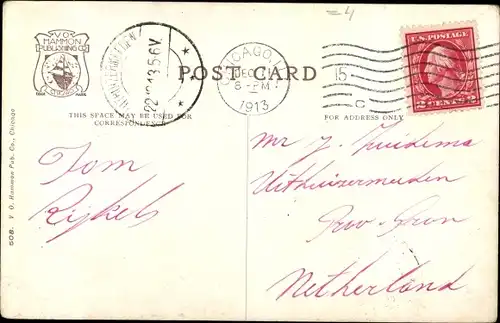 =4
V.O.
HAMMON
PUBLISHING CO.
CHICAGO
TRADE MARK
22.12.13.5-6V.
POST CARD
CHICAGO, ILL.
DEC
8-PM
1913
15
C
U.S. POSTAGE
2 CENTS 2
THIS SPACE MAY BE USED FOR
CORRESPONDENCE
FOR ADDRESS ONLY
Tom
Rijkels
Mr J. Zuidema
Uithuizermeeden
Prov-Gron
Netherland
508. V. O. Hammon Pub. Co., Chicago